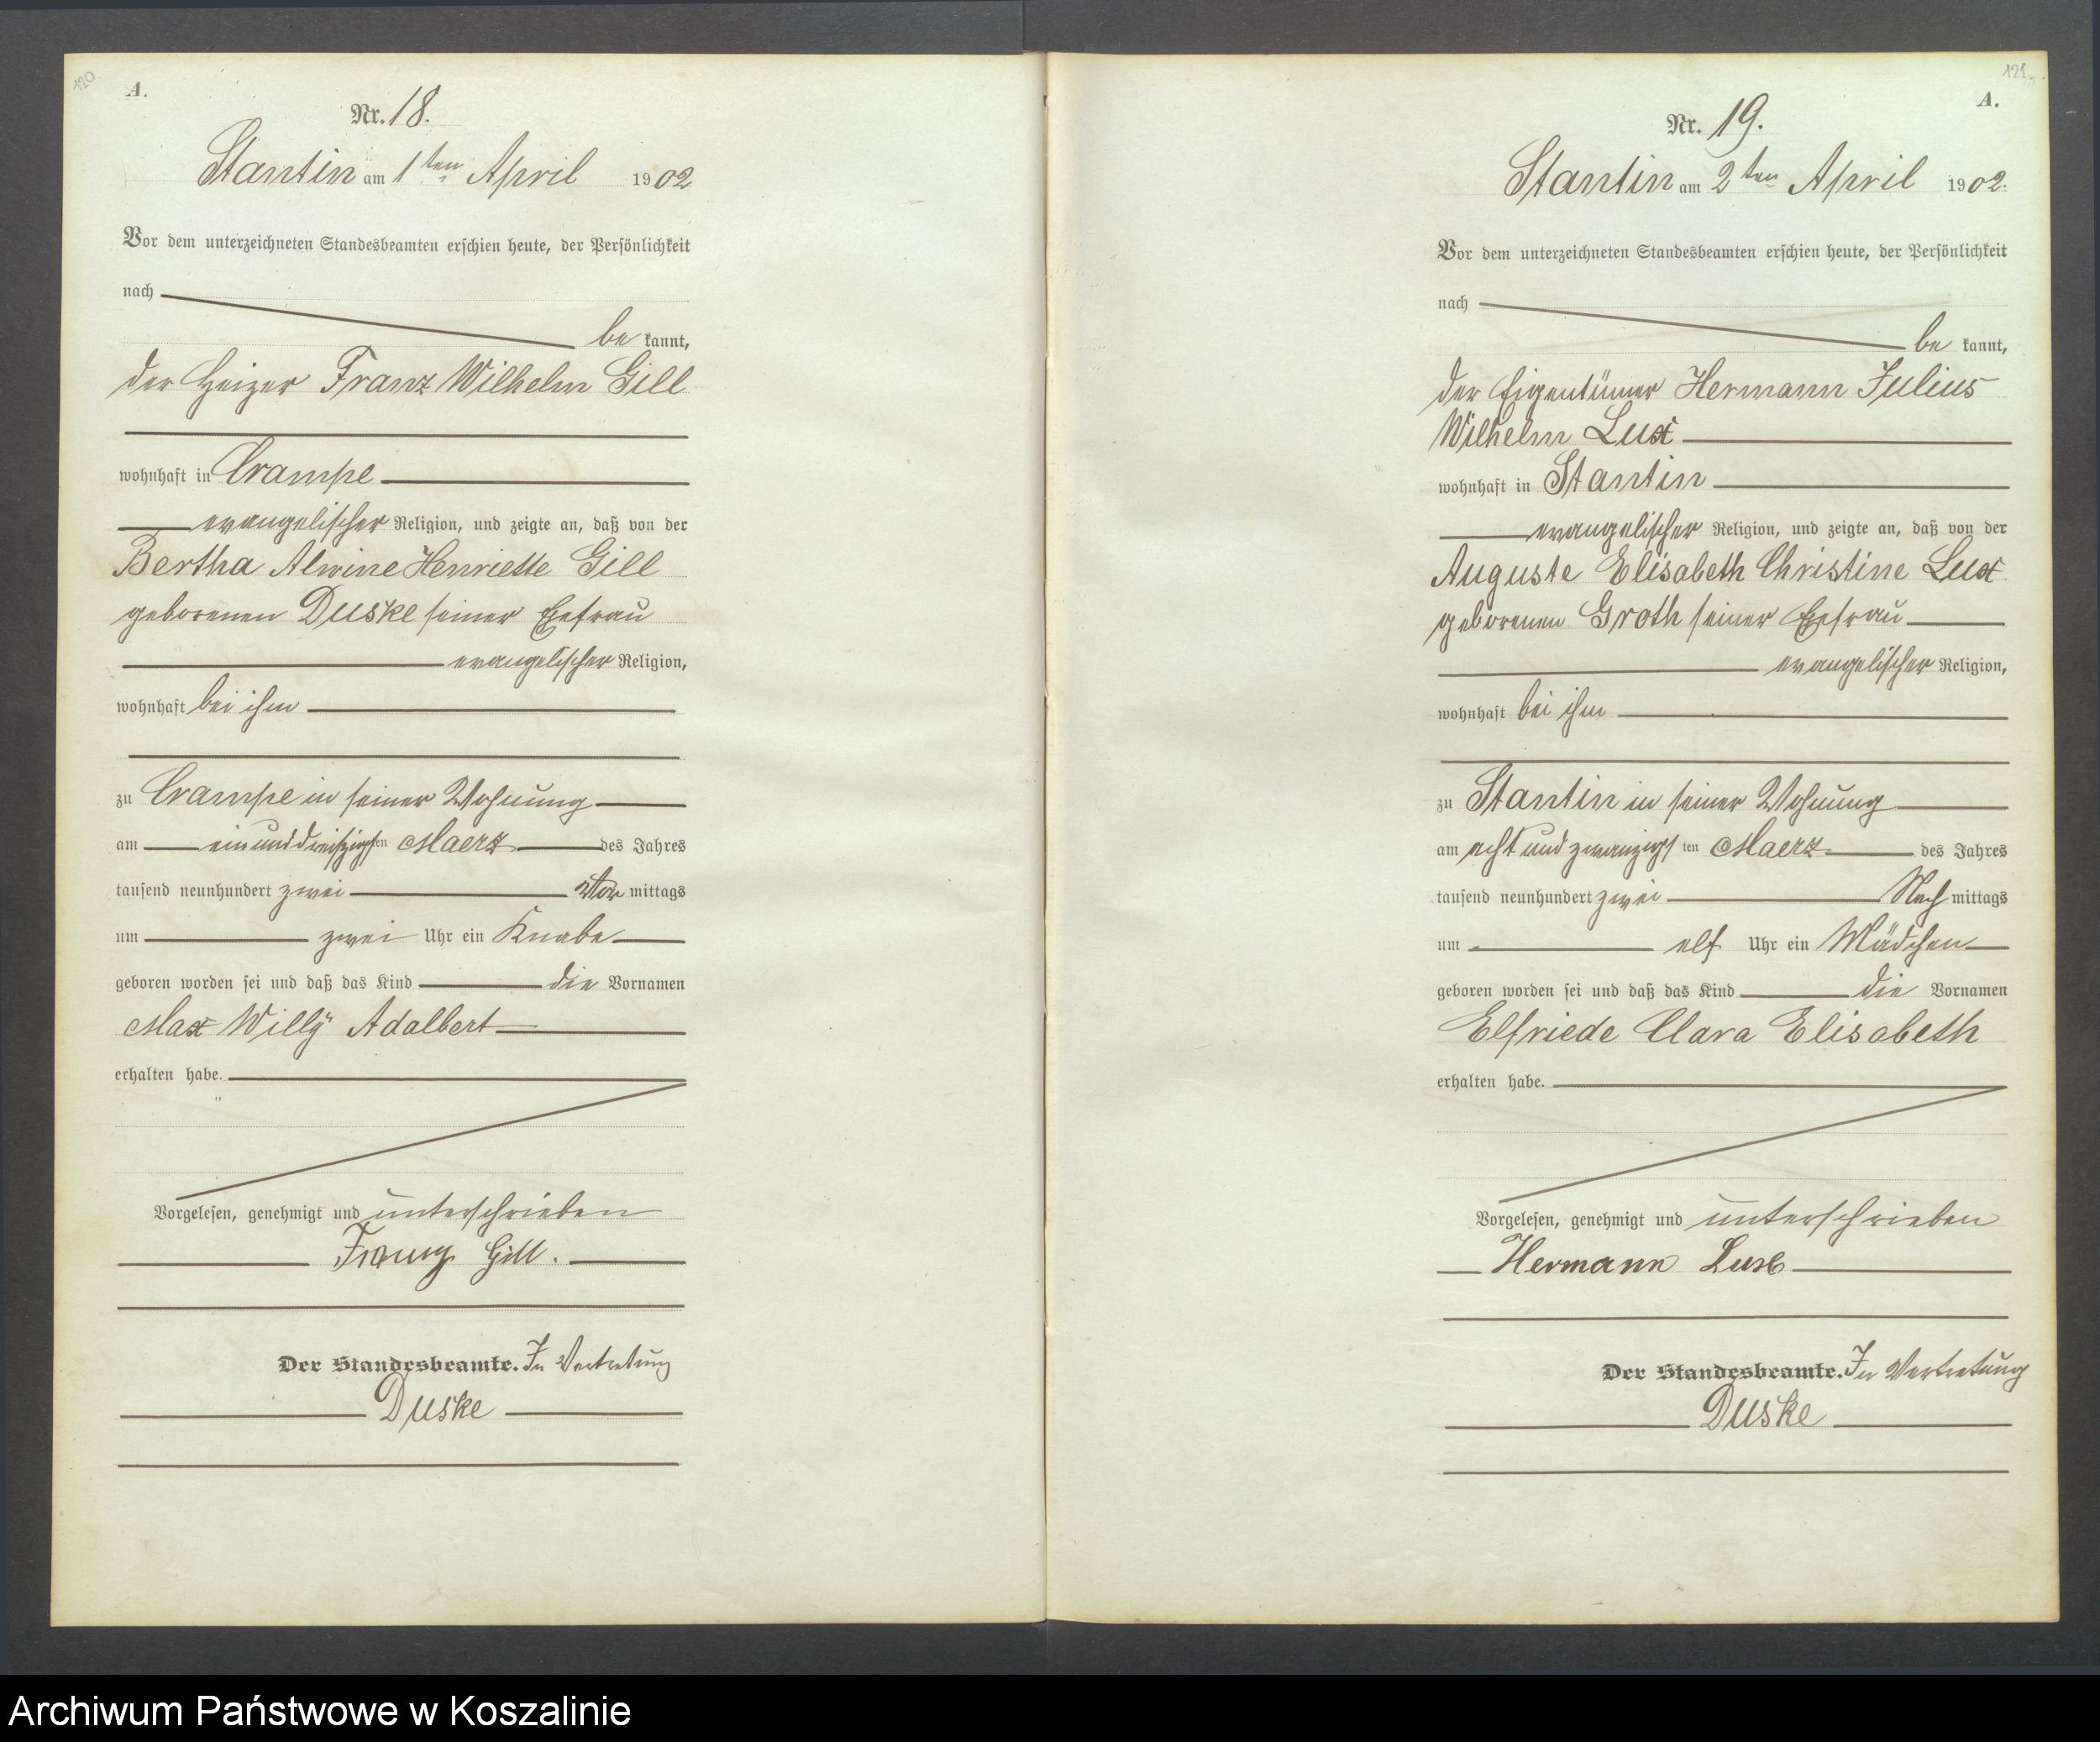 120
A.
Nr. 18.
Stantin am 1ten April 1902
Vor dem unterzeichneten Standesbeamten erschien heute, der Persönlichkeit
nach
be kannt,
der Heizer Franz Wilhelm Gill
wohnhaft in Crampe
evangelischer Religion, und zeigte an, daß von der
Bertha Alwine Henriette Gill
geborenen Duske seiner Ehefrau
evangelischer Religion,
wohnhaft bei ihm
zu Crampe in seiner Wohnung
am einunddreißigsten Maerz des Jahres
tausend neunhundert zwei Vor mittags
um zwei Uhr ein Knabe
geboren worden sei und daß das Kind die Vornamen
Max Willÿ Adalbert
erhalten habe.
Vorgelesen, genehmigt und unterschrieben
Franz Gill.
Der Standesbeamte. In Vertretung
Duske
121
A.
Nr. 19.
Stantin am 2ten April 1902.
Vor dem unterzeichneten Standesbeamten erschien heute, der Persönlichkeit
nach
be kannt,
der Eigentümer Hermann Julius
Wilhelm Lux
wohnhaft in Stantin
evangelischer Religion, und zeigte an, daß von der
Auguste Elisabeth Christine Lux
geborenen Groth seiner Ehefrau
evangelischer Religion,
wohnhaft bei ihm
zu Stantin in seiner Wohnung
am acht und zwanzigs ten Maerz des Jahres
tausend neunhundert zwei Nach mittags
um elf Uhr ein Mädchen
geboren worden sei und daß das Kind die Vornamen
Elfriede Clara Elisabeth
erhalten habe.
Vorgelesen, genehmigt und unterschrieben
Hermann Lux
Der Standesbeamte. In Vertretung
Duske
Archiwum Państwowe w Koszalinie